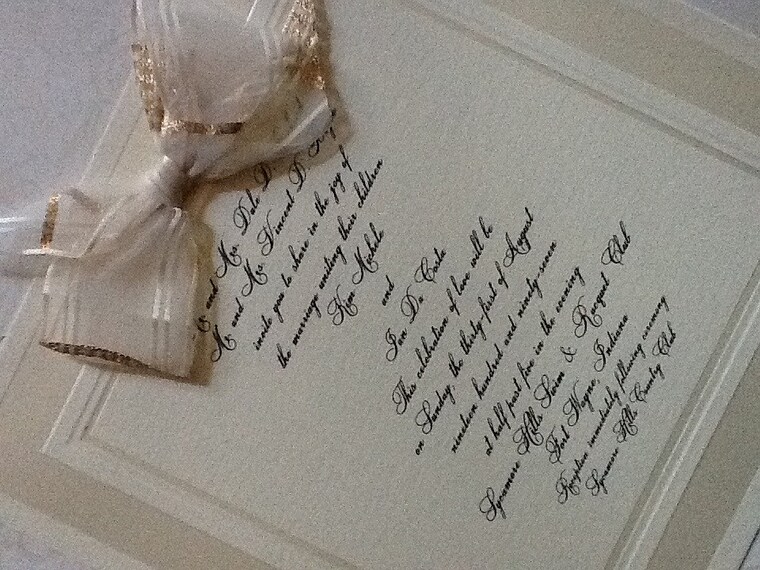 and Mrs. Dale D.
Mr. and Mrs. Vincent D.
invite you to share in the joy of
the marriage uniting their children
Kim Michele
and
Ian De Coste
This celebration of love will be
on Sunday, the thirty-first of August
nineteen hundred and ninety-seven
at half past five in the evening
Sycamore Hills Swim & Racquet Club
Fort Wayne, Indiana
Reception immediately following ceremony
Sycamore Hills Country Club